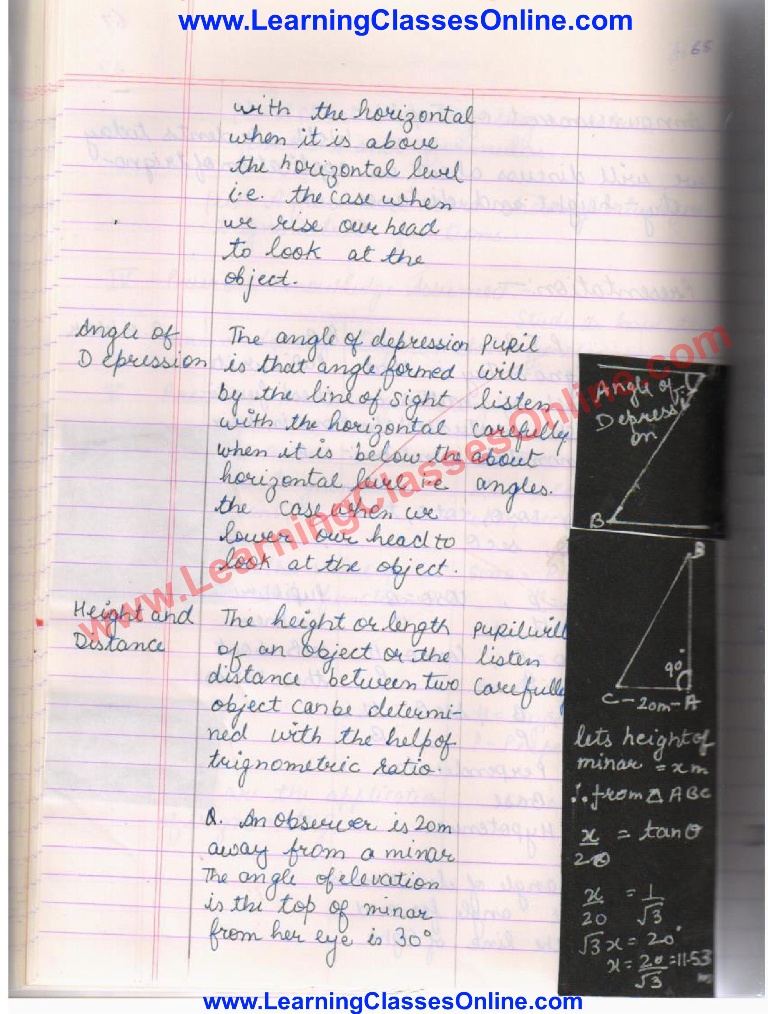 www.LearningClassesOnline.com
65
with the horizontal
when it is above
the horizontal level
i.e. the case when
we rise our head
to look at the
object.
Angle of
Depression
The angle of depression
is that angle formed
by the line of sight
with the horizontal
when it is below the
horizontal level i.e
the case when we
lower our head to
look at the object.
Pupil
will
listen
carefully
about
angles.
Angle of
Depressi
on
B
Height and
Distance
The height or length
of an object or the
distance between two
object can be determi-
ned with the help of
trignometric ratio.
Pupil will
listen
carefully
B
90°
C - 20m - A
lets height of
minar = x m
∴ from △ ABC
x/20 = tan θ
x/20 = 1/√3
√3 x = 20
x = 20/√3 = 11.53
m
Q. An observer is 20m
away from a minar
The angle of elevation
is the top of minar
from her eye is 30°
www.LearningClassesOnline.com
www.LearningClassesOnline.com